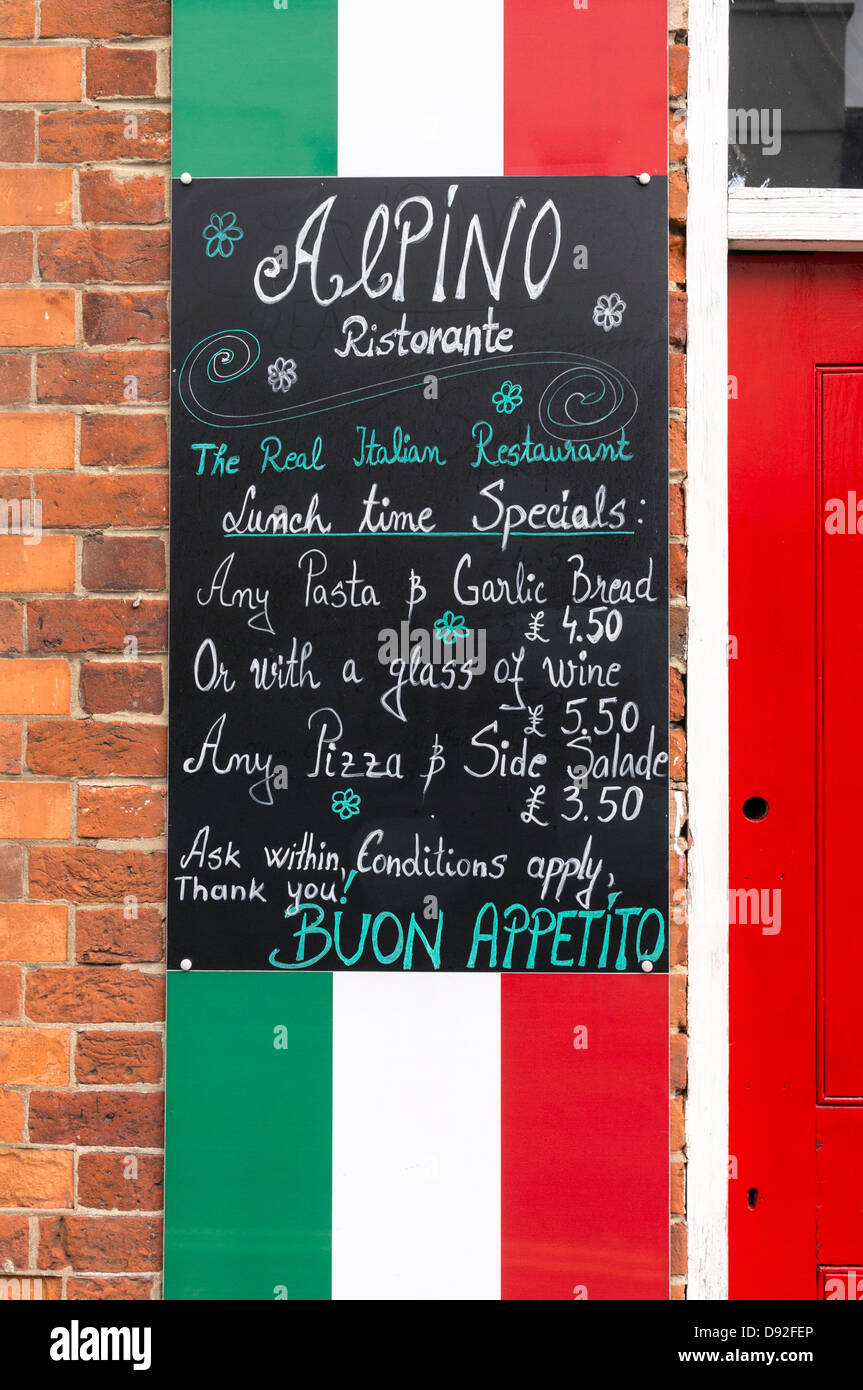 AlPINO
Ristorante
The Real Italian Restaurant
Lunch time Specials:
Any Pasta & Garlic Bread
£ 4.50
Or with a glass of wine
£ 5.50
Any Pizza & Side Salade
£ 3.50
Ask within, Conditions apply,
Thank you!
BUON APPETÍTO
alamy
Image ID: D92FEP
www.alamy.com